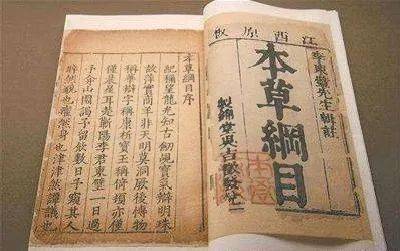 江西原板
李東璧先生輯註
本草綱目
本草綱目序
紀稱望龍光知古劍覘寶氣辨明珠
故萍實商羊非天明莫洞厥後博物
稱華辯字稱康析寶玉稱倚頓亦僅
僅晨星耳楚蘄陽李君東璧一日過
予弇山園謁予留飲數日予窺其人
睟然貌也癯然身也津津然譚議也